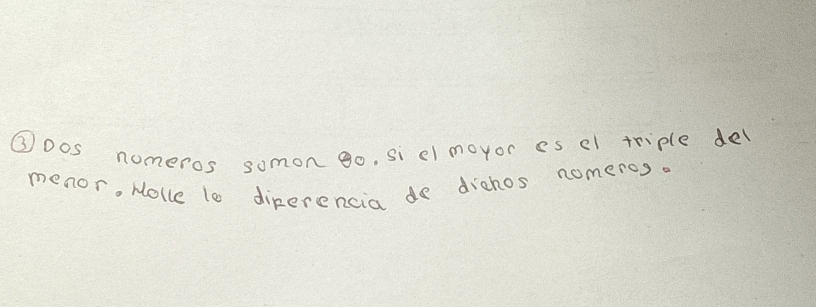 ③ Dos numeros suman 80. si el mayor es el triple del
menor. Halle la diferencia de dichos numeros.